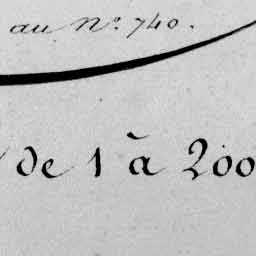 au N° 740.
de 1 à 200